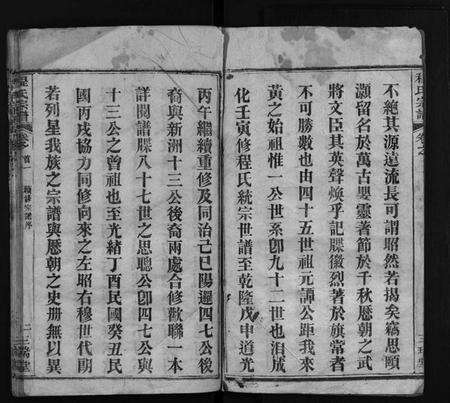 程氏宗譜 卷之
不絕其源遠流長可謂昭然若揭矣竊思頤
灝留名於萬古嬰靈著節於千秋歷朝之武
將文臣其英聲煥乎記牒徽烈著於旗常者
不可勝數也由四十五世祖元譚公距我來
黃之始祖惟一公世系卽九十二世也洎咸
化壬寅修程氏統宗世譜至乾隆戊申道光
丙午繼續重修及同治己巳陽邏四七公後
裔與新洲十三公後裔兩處合修歡聯一本
詳閱譜牒八十七世之思聰公卽四七公與
十三公之曾祖也至光緒丁酉民國癸丑民
國丙戌協力同修向來之左昭右穆世代朗
若列星我族之宗譜與歷朝之史册無以異
程氏宗譜 卷之 首 續修宗譜序 二